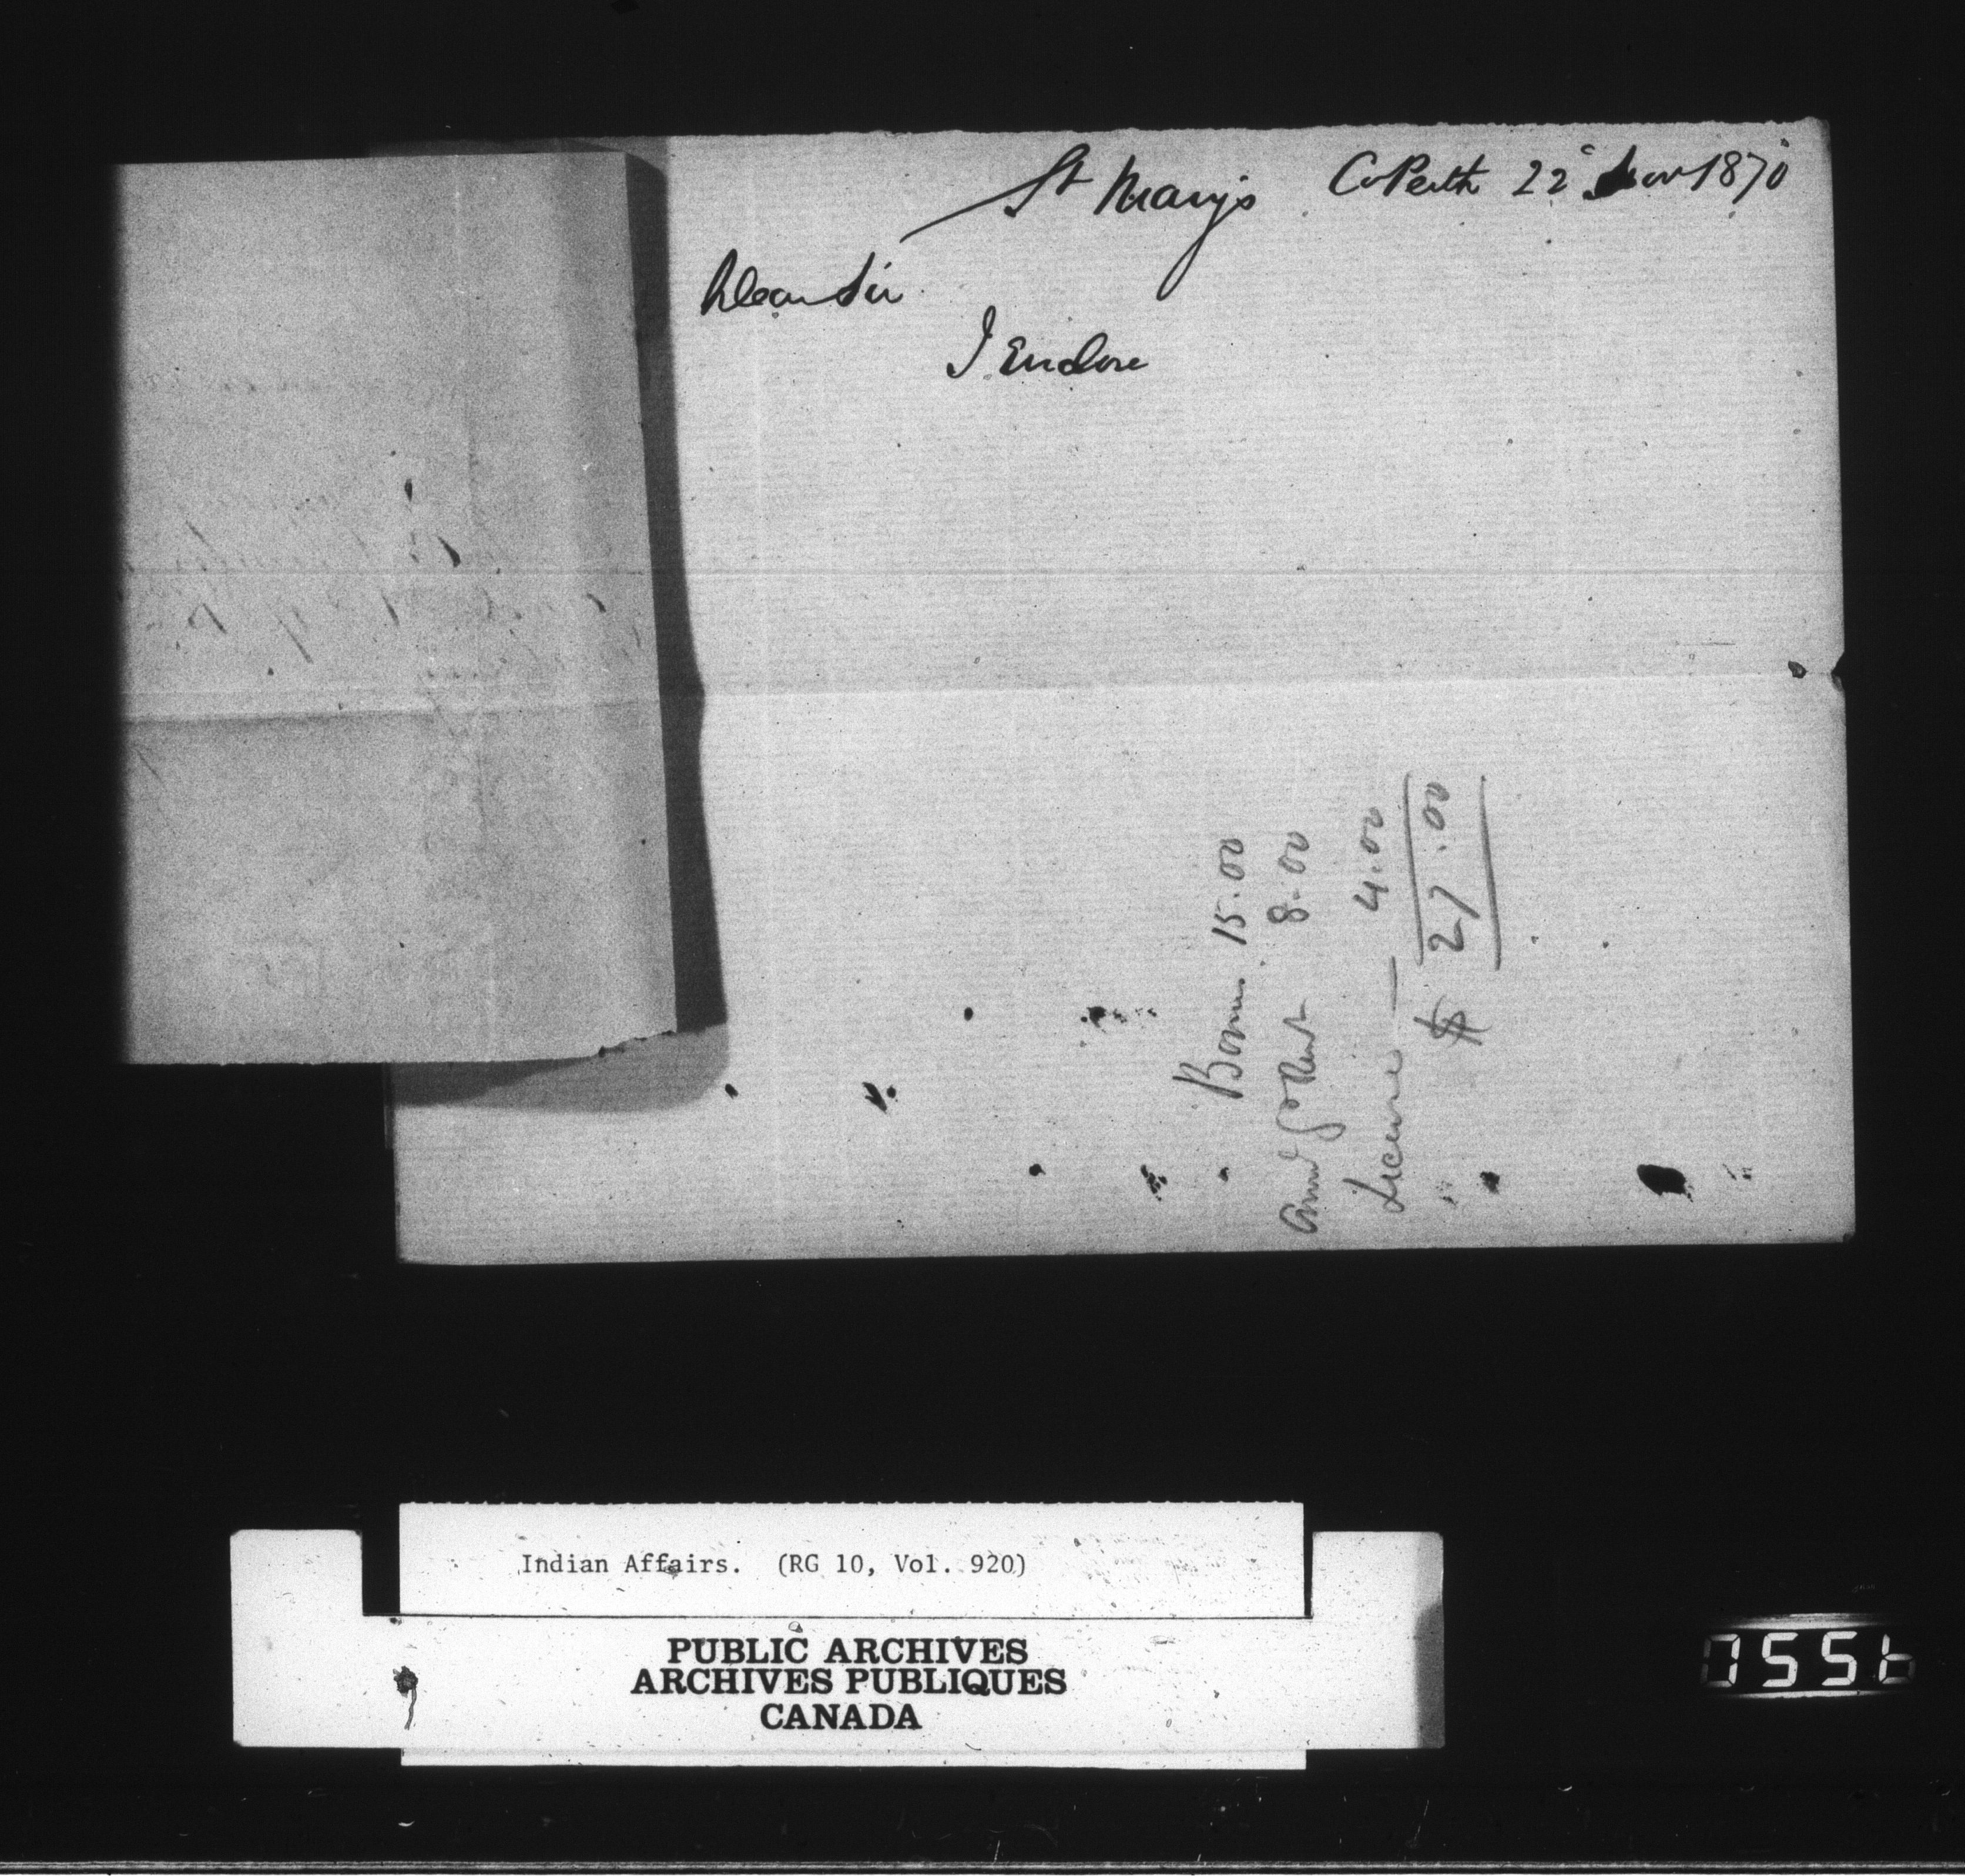 St Marys Co Perth 22 Nov 1870
Dear Sir
I Enclose
Bonus 15.00
Rent 8.00
License — 4.00
$ 27.00
Indian Affairs. (RG 10, Vol. 920)
PUBLIC ARCHIVES
ARCHIVES PUBLIQUES
CANADA